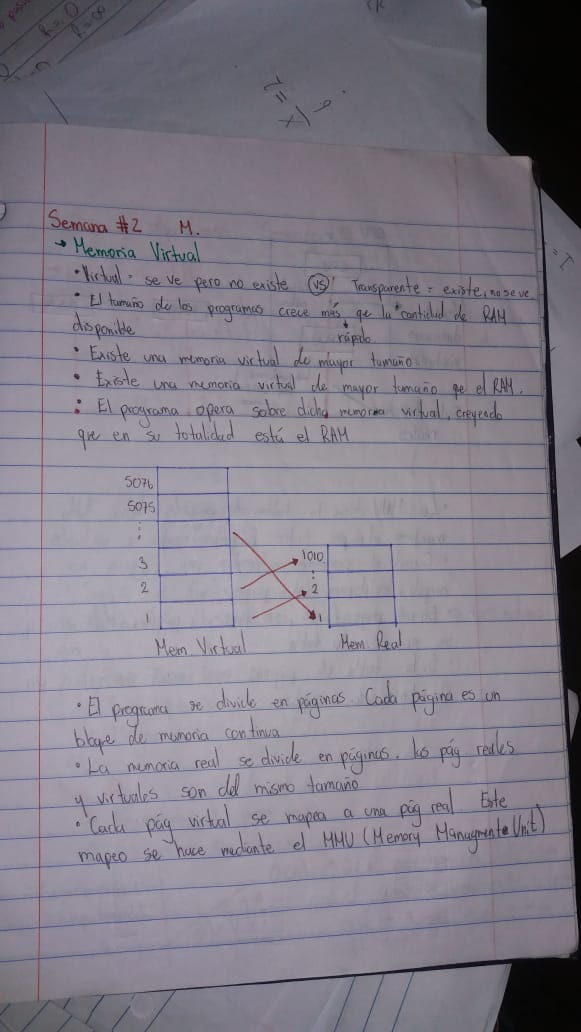 Semana #2 M.
→ Memoria Virtual
• Virtual = se ve pero no existe (VS) Transparente = existe, no se ve
• El tamaño de los programas crece más qe la cantidad de RAM
disponible rápido
• Existe una memoria virtual de mayor tamaño
• Existe una memoria virtual de mayor tamaño qe el RAM.
• El programa opera sobre dicha memoria virtual, creyendo
que en su totalidad está el RAM
5076
5075
⋮
3
2
1
Mem Virtual
1010
⋮
2
1
Mem Real
• El programa se divide en páginas. Cada página es un
bloqe de memoria continua
• La memoria real se divide en páginas. las pág reales
y virtuales son del mismo tamaño
• Cada pág virtual se mapea a una pág real Este
mapeo se hace mediante el MMU (Memory Managmente Unit)